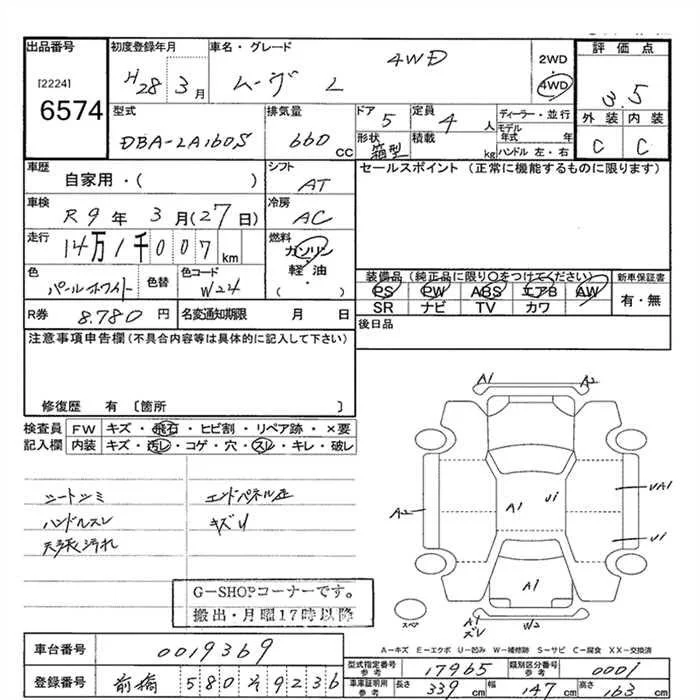 出品番号 初度登録年月 車名・グレード 2WD 評価点
[2224] H28年3月 ムーヴ L 4WD 4WD 3.5
6574 型式 排気量 ドア 5 定員 4人 ディーラー・並行 外装 内装
DBA-LA160S 660 CC 形状 箱型 積載 kg モデル年式 年 C C
ハンドル 左・右
車歴 シフト セールスポイント (正常に機能するものに限ります)
自家用・( ) AT
車検 冷房
R9年3月(27日) AC
走行 燃料
14万1千007km ガソリン
軽・油
( )
色 色替 色コード 装備品 (純正品に限り○をつけてください) 新車保証書
パールホワイト W24 PS PW ABS エアB AW 有・無
SR ナビ TV カワ
R券 8.780円 名変通知期限 月 日 後日品
注意事項申告欄(不具合内容等は具体的に記入して下さい)
修復歴 有 〔箇所 〕
検査員 FW キズ・飛石・ヒビ割・リペア跡・×要
記入欄 内装 キズ・汚レ・コゲ・穴・スレ・キレ・破レ
シートシミ エンドパネル
ハンドルスレ キズU
天張汚れ
A1 A2
A2 A1 Ui UA1
U1
A1
スペア A1 W2
キズU
G-SHOPコーナーです。
搬出・月曜17時以降
A-キズ E-エクボ U-凹み W-補修跡 S-サビ C-腐食 XX-交換済
車台番号 0019369 型式指定番号 参考 17965 類別区分番号 参考 0001
登録番号 前橋 580 そ 9236 車庫証明用 参考 長さ 339 cm 幅 147 cm 高さ 163 cm